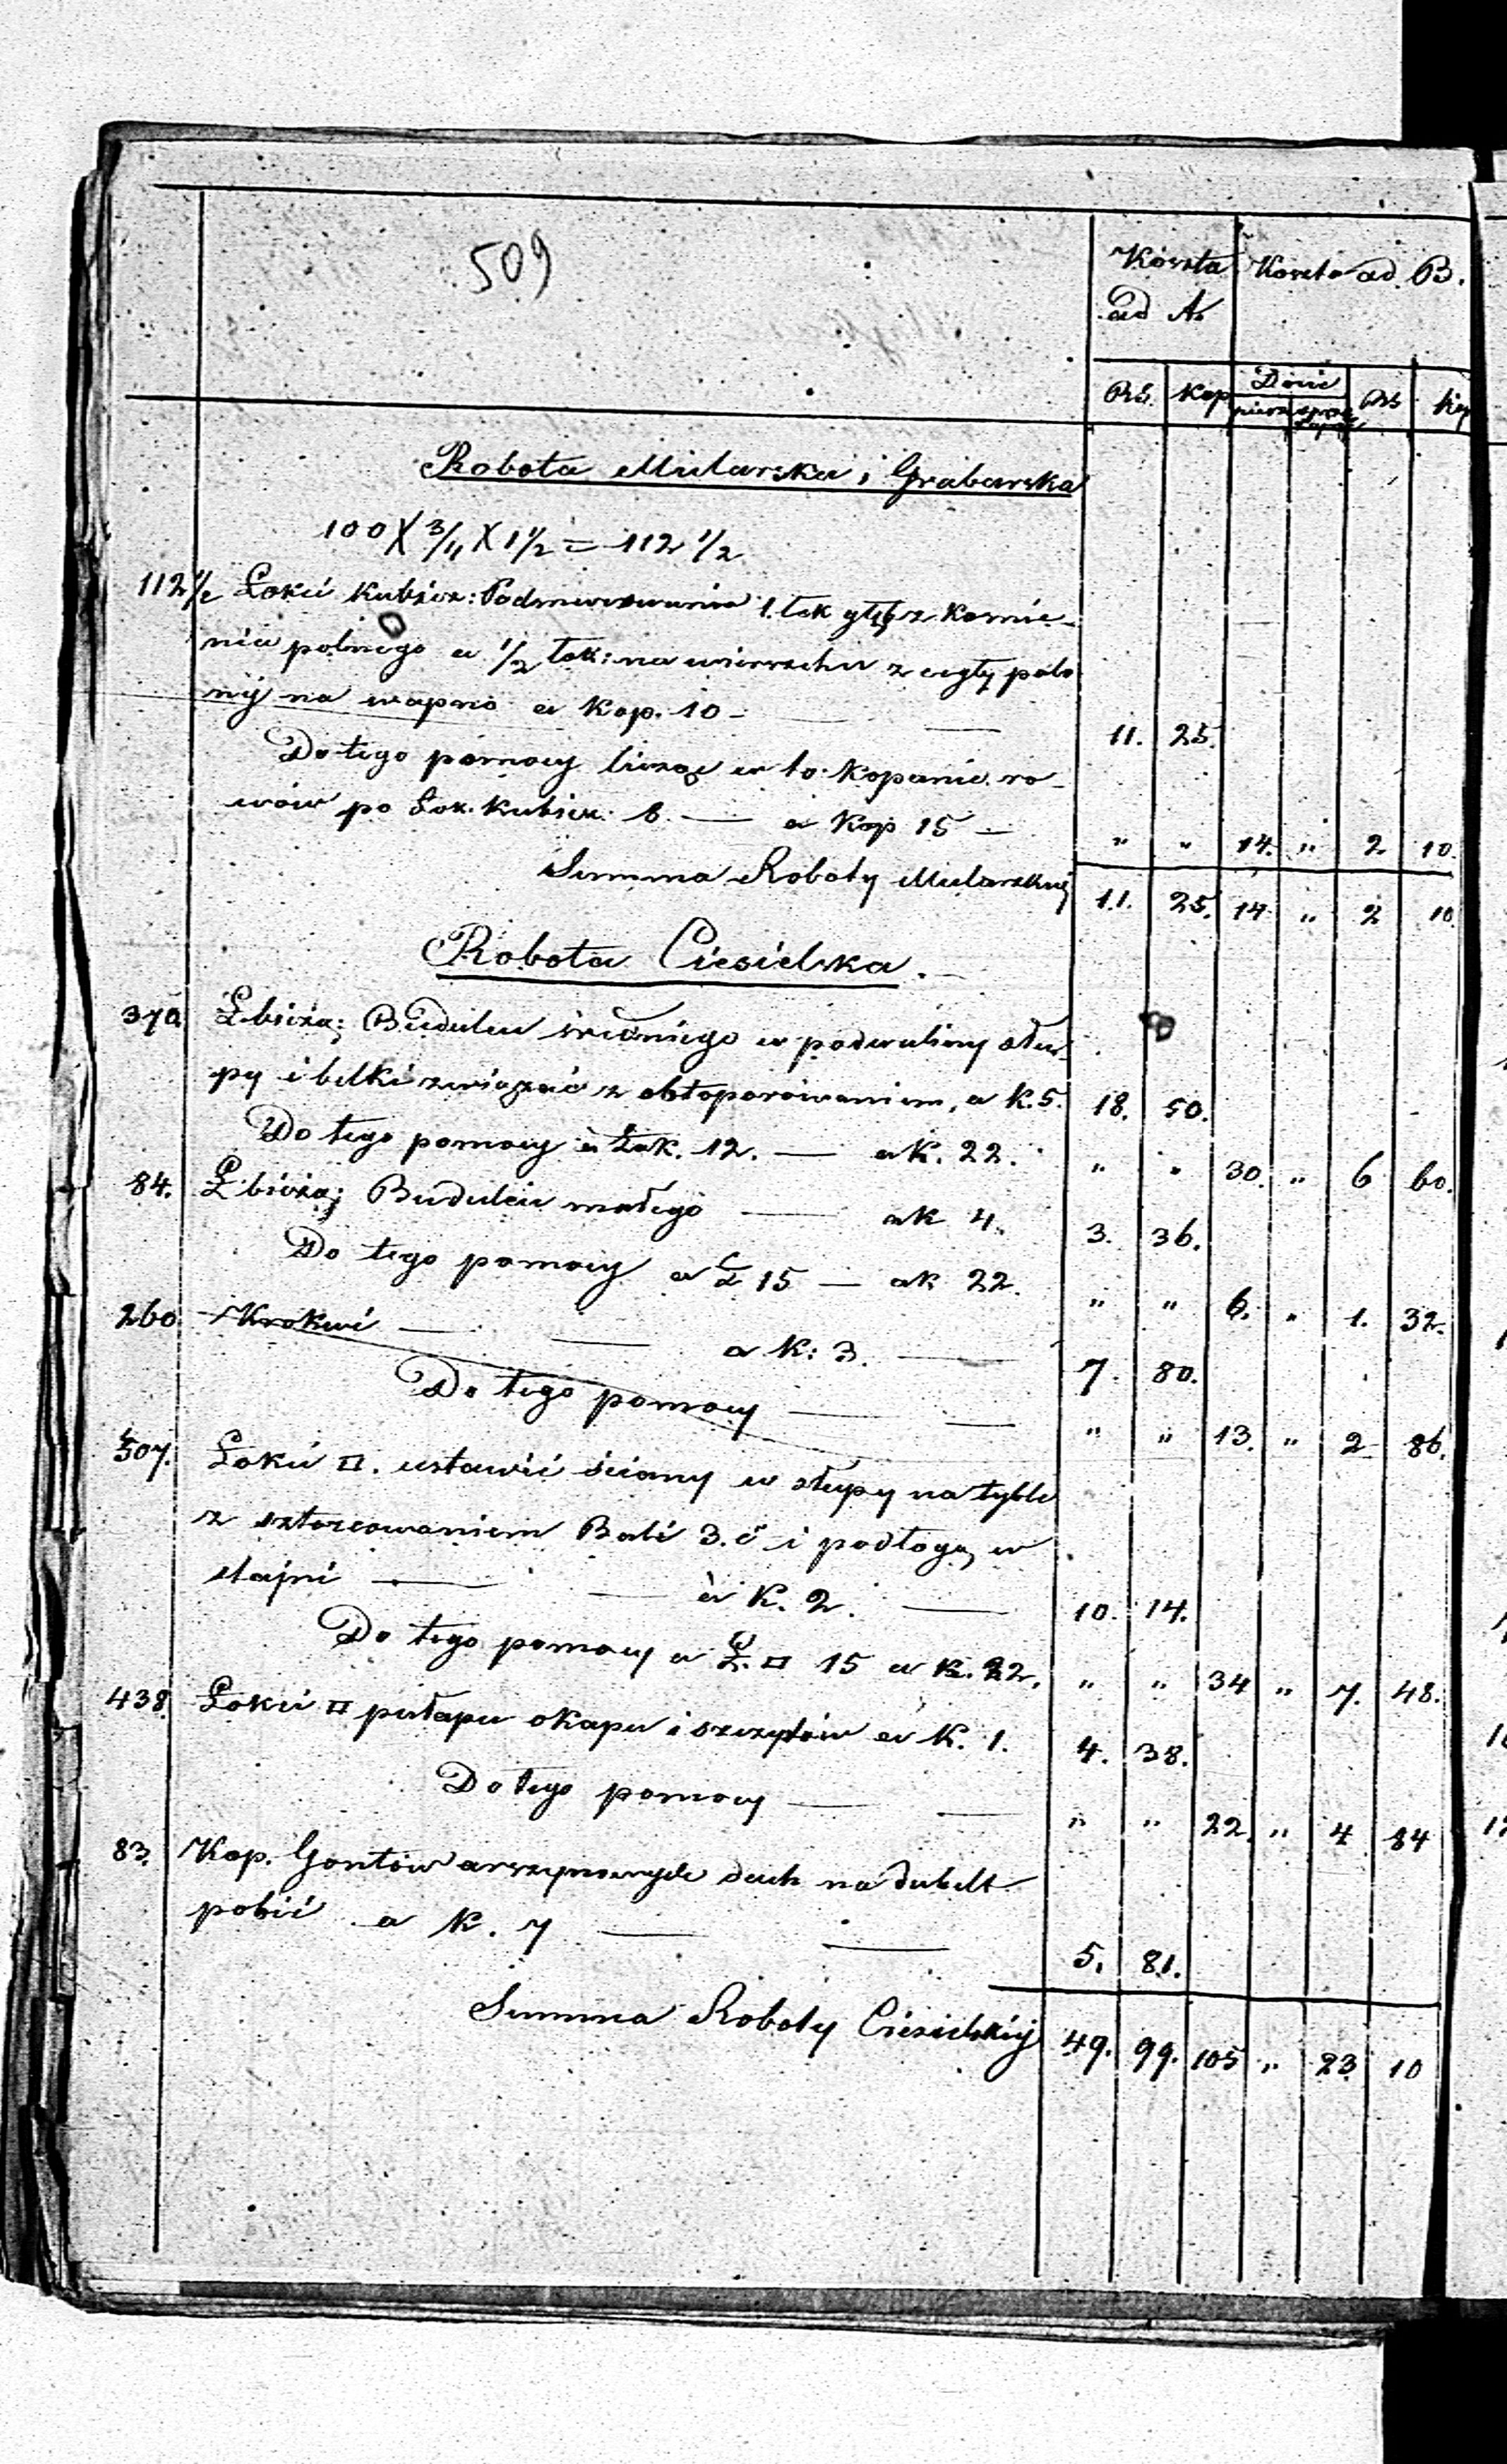 509
Koszta Koszta ad B.
ad A.
Rś. Kop Dnie Rś Kop
piesze sprzę
Robota Mularska i Grabarska
100 X 3/4 X 1 1/2 = 112 1/2
112 1/2 Łokci kubicz: Podmurowania 1. łok głęb z kamie-
nia polnego a 1/2 łok: na wierzchu z cegły palo
nij na wapno a Kop. 10 — 11. 25.
Do tego pomocy licząc w to kopanie ro-
wów po Łok. kubicz: 8. — a Kop 15 — " " 14. " 2 10.
Summa Roboty Mularskiej 11. 25. 14 " 2 10
Robota Ciesielska.
370 Ł bieżą: Budulcu średniego w podwaliny słu-
py i belki związać z obtoporowaniem, a K. 5. 18. 50.
Do tego pomocy à Łok. 12. — a K. 22. " " 30. " 6 60.
84. Ł bieżą: Budulcu małego — a K 4. 3. 36.
Do tego pomocy a Ł 15 — a K 22. " " 6. " 1. 32.
260 Krokwi — — a K: 3. — 7. 80.
Do tego pomocy — — " " 13. " 2 86.
507. Łokci □. ustawić ściany w słupy na tyble
z sztorcowaniem Bali 3. c i podłogę w
stajni — — à K. 2. — 10. 14.
Do tego pomocy a Ł. □ 15 a K. 22. " " 34 " 7. 48.
438. Łokci □ pułapu okapu i szczytów à K. 1. 4. 38.
Do tego pomocy — — " " 22. " 4 84
83. Kop. Gontów arszynowych dach na dubelt
pobić a K. 7 — — 5. 81.
Summa Roboty Ciesielskiej 49. 99. 105 " 23 10